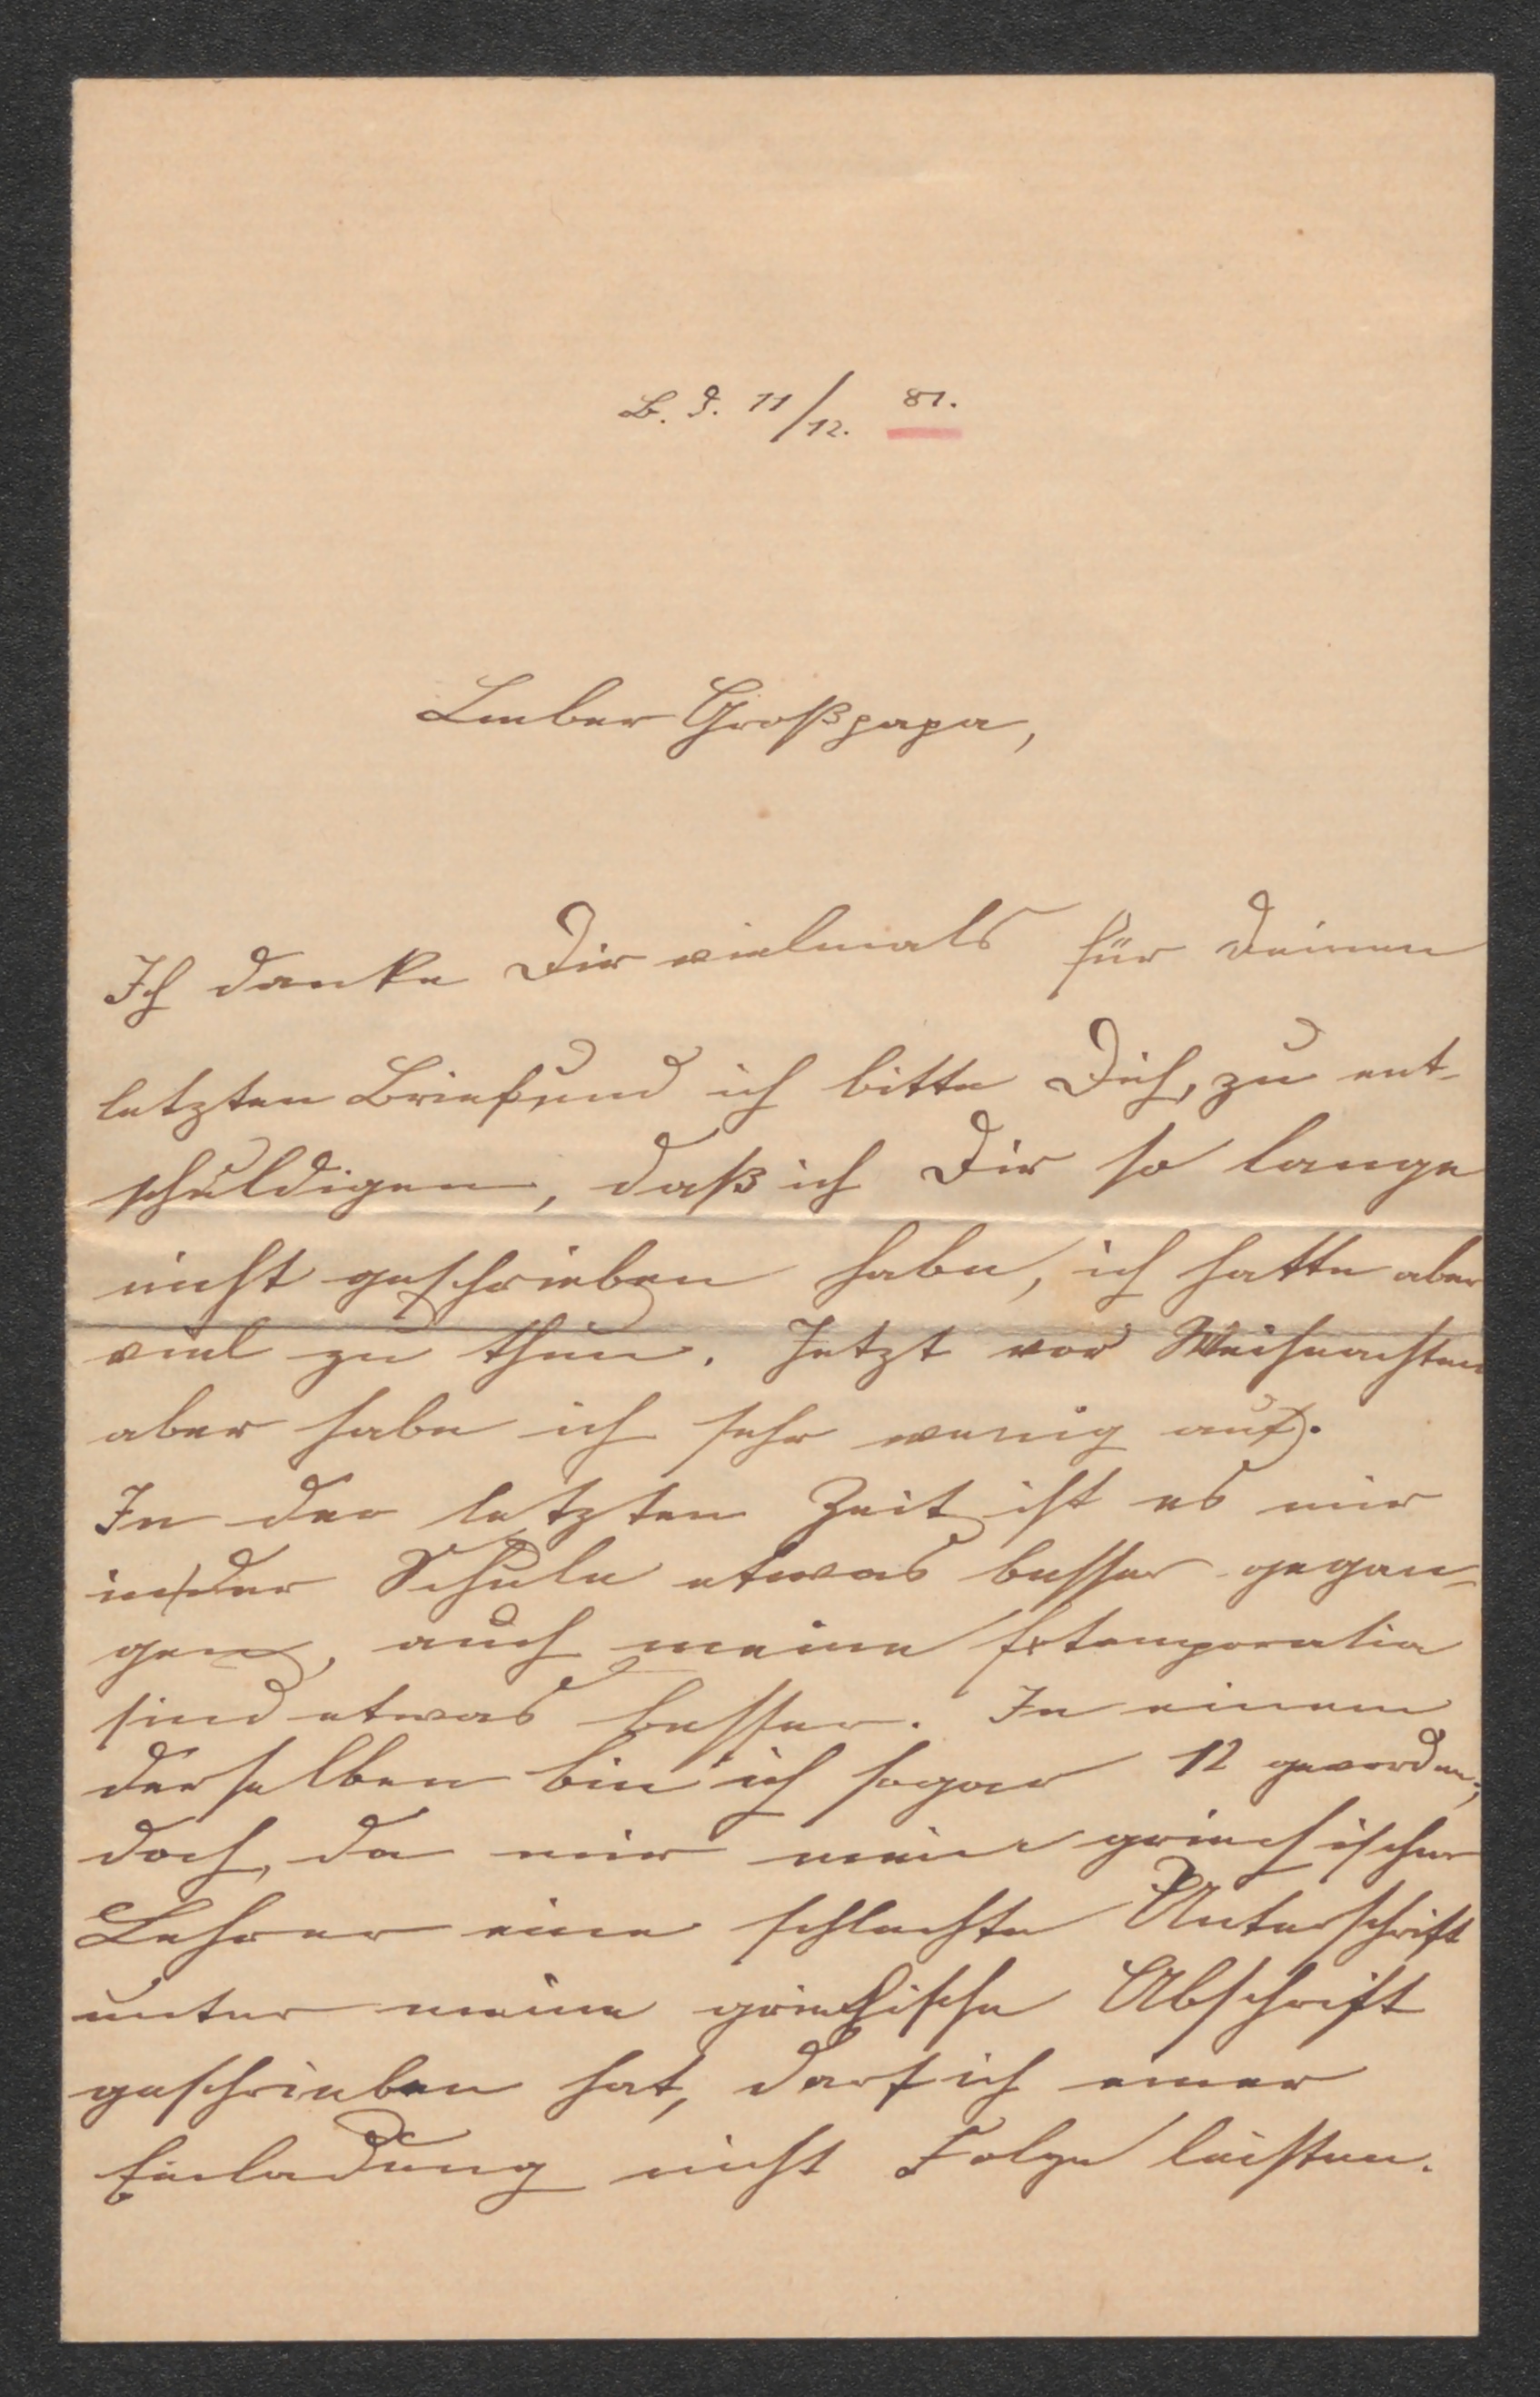 B. d. 11/12. 81.
Lieber Großpapa,
Ich danke Dir vielmals für Deinen
letzten Brief, und ich bitte Dich, zu ent-
schuldigen, daß ich Dir so lange
nicht geschrieben habe, ich hatte aber
viel zu thun. Jetzt vor Weihnachten
aber habe ich sehr wenig auf.
In der letzten Zeit ist es mir
in der Schule etwas besser gegan-
gen, auch meine Extemporalia
sind etwas besser. In einem
derselben bin ich sogar 12 geworden;
doch, da mir mein griechischer
Lehrer eine schlechte Unterschrift
unter meine griechische Abschrift
geschrieben hat, darf ich einer
Einladung nicht Folge leisten.